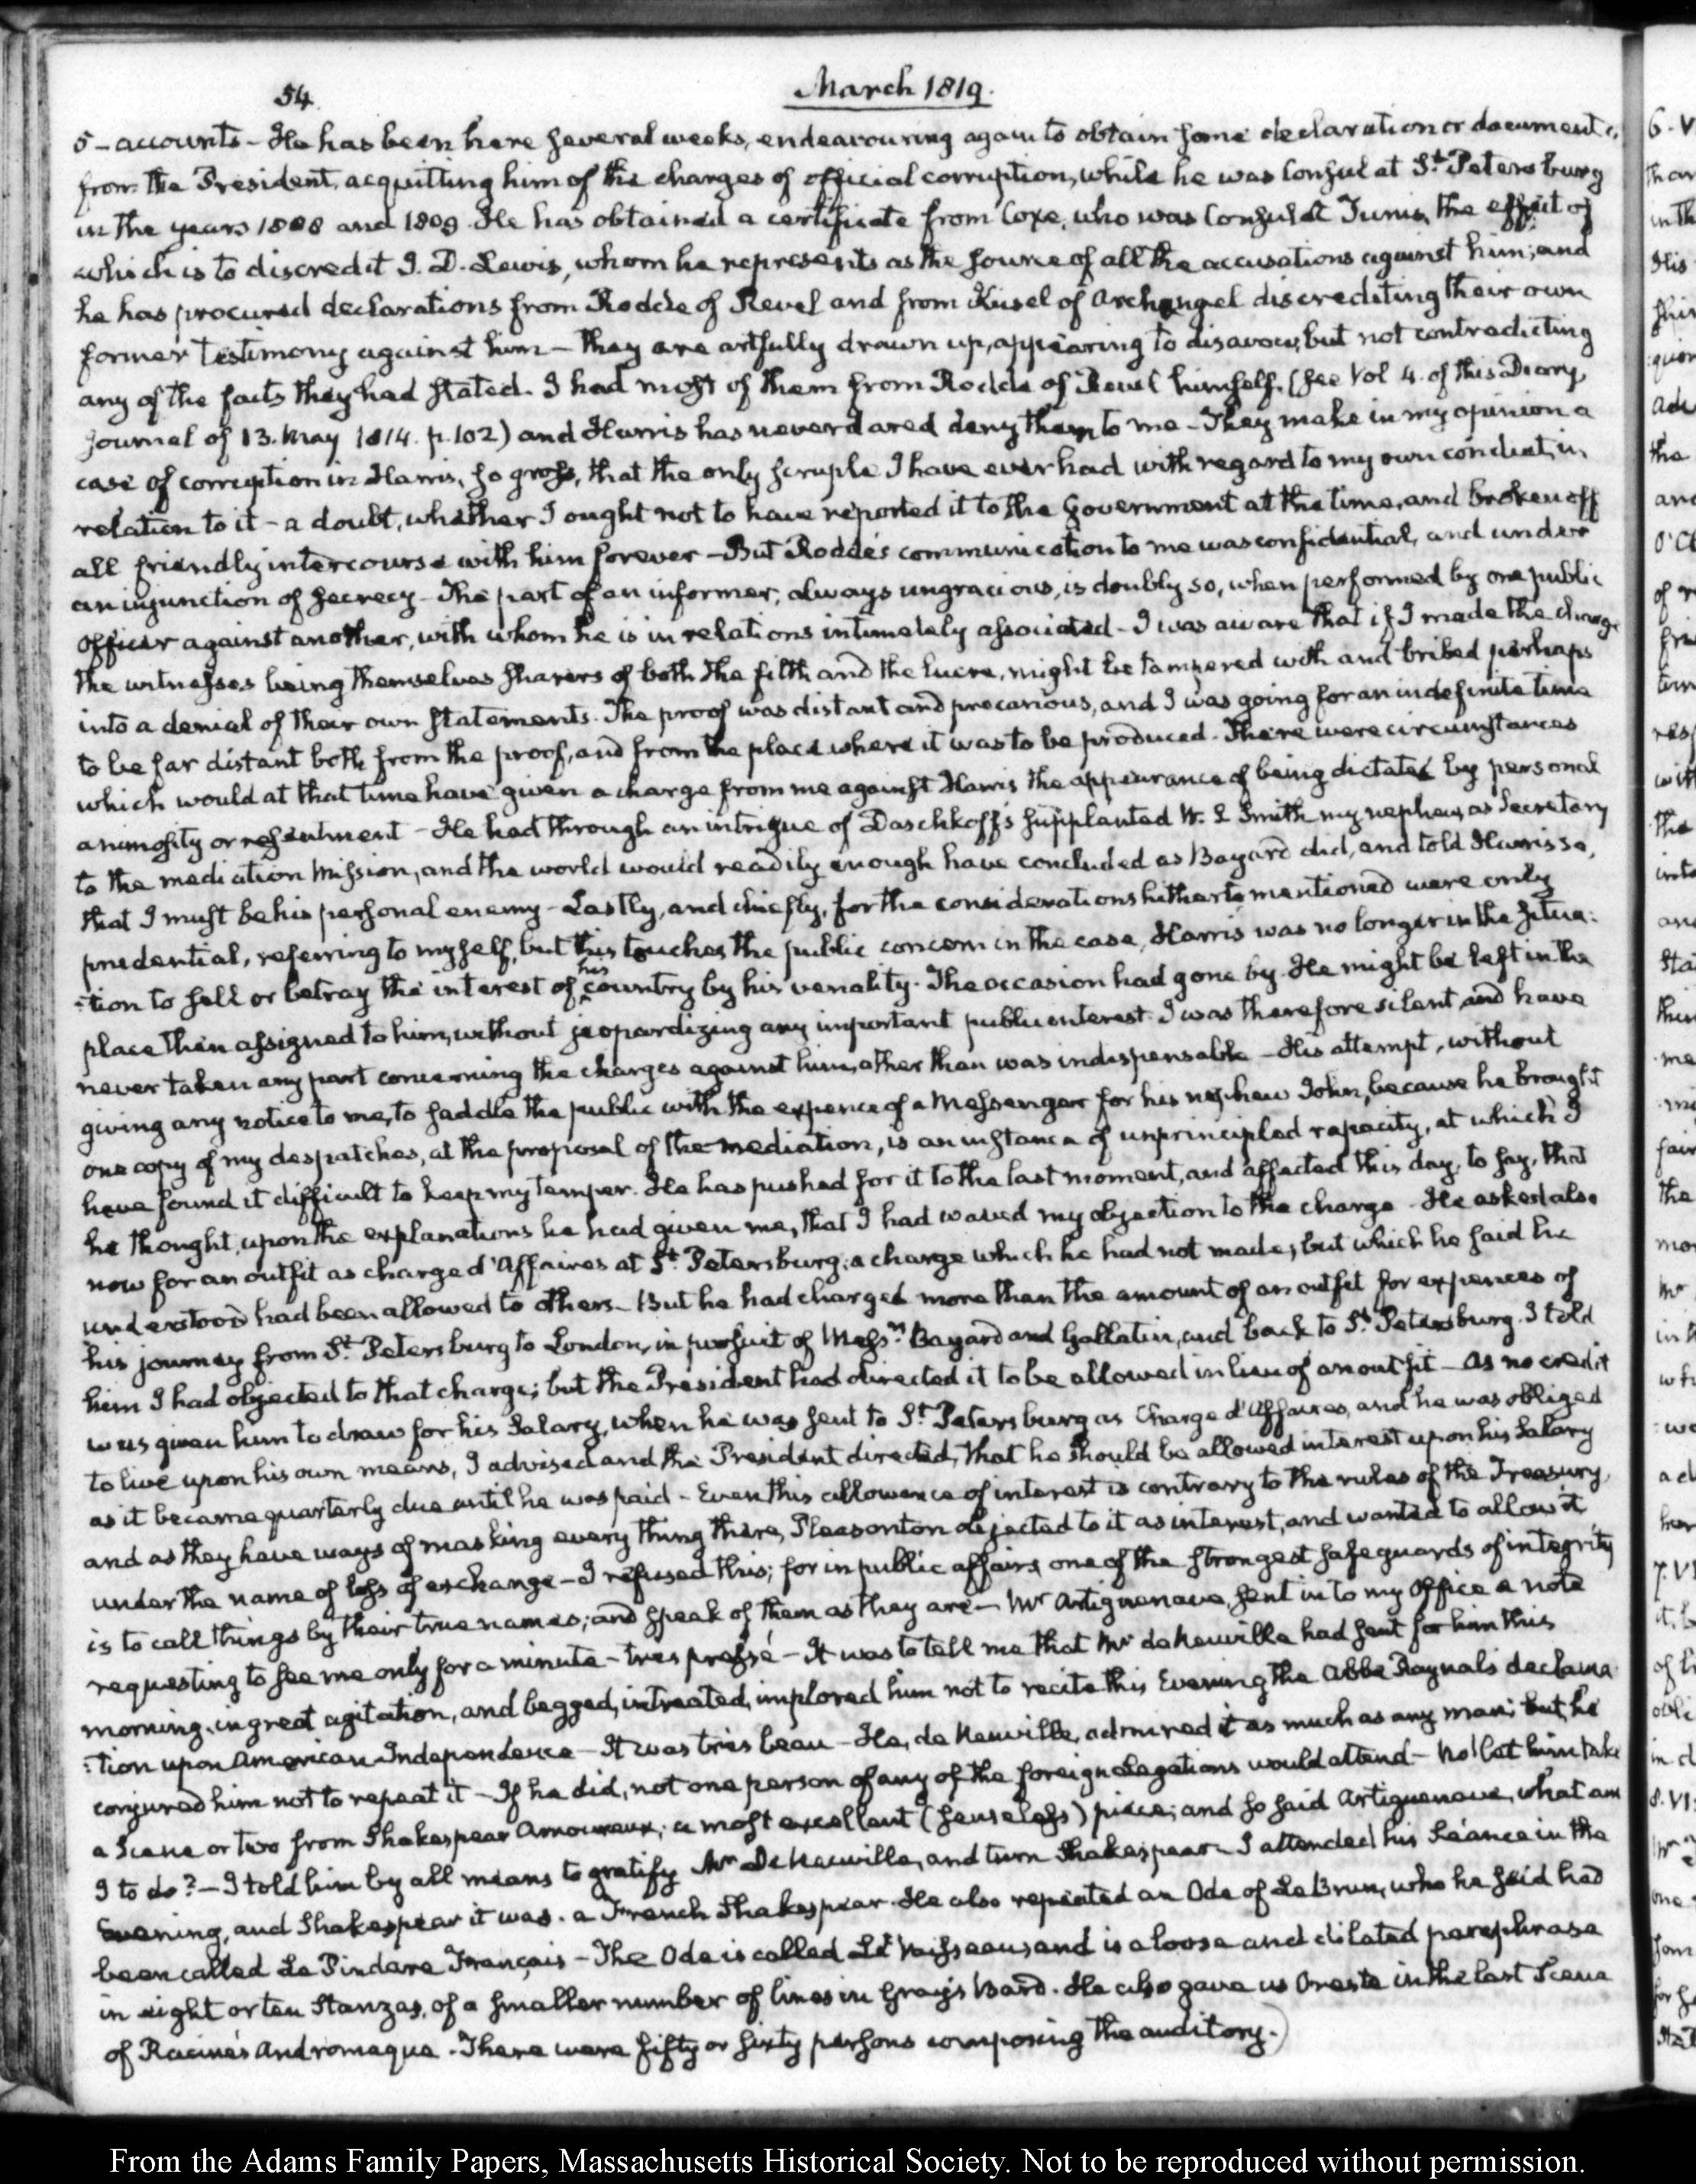 54
March 1819.
5 - accounts - He has been here several weeks, endeavouring again to obtain some declaration or document,
from the President, acquitting him of the charges of official corruption, while he was Consul at St. Petersburg
in the years 1808 and 1809. He has obtained a certificate from Coxe, who was Consul at Tunis, the effect of
which is to discredit J. D. Lewis, whom he represents as the source of all the accusations against him; and
he has procured declarations from Rodde of Revel and from Kusel of Archangel discrediting their own
former testimony against him - They are artfully drawn up, appearing to disavow, but not contradicting
any of the facts they had stated. I had most of them from Rodde of Revel himself. (See Vol 4. of this Diary,
Journal of 13. May 1814. p. 102) and Harris has never dared deny them to me - They make in my opinion a
case of corruption in Harris, so gross, that the only scruple I have ever had with regard to my own conduct, in
relation to it - a doubt, whether I ought not to have reported it to the Government at the time, and broken off
all friendly intercourse with him forever - But Rodde's communication to me was confidential, and under
an injunction of secrecy - The part of an informer, always ungracious, is doubly so, when performed by one public
officer against another, with whom he is in relations intimately associated - I was aware that if I made the charge
the witnesses being themselves sharers of both the filth and the lucre, might be tampered with and bribed perhaps
into a denial of their own statements. The proof was distant and precarious, and I was going for an indefinite time
to be far distant both from the proof, and from the place where it was to be produced. There were circumstances
which would at that time have given a charge from me against Harris the appearance of being dictated by personal
animosity or resentment - He had through an intrigue of Daschkoff's supplanted W. S. Smith my nephew, as Secretary
to the mediation Mission, and the world would readily enough have concluded as Bayard did, and told Harris so,
that I must be his personal enemy - Lastly, and chiefly, for the considerations hitherto mentioned were only
prudential, referring to myself, but this touches the public concern in the case, Harris was no longer in the situa-
-tion to sell or betray the interest of his country by his venality. The occasion had gone by. He might be left in the
place then assigned to him, without jeopardizing any important public interest. I was therefore silent, and have
never taken any part concerning the charges against him, other than was indispensable - His attempt, without
giving any notice to me, to saddle the public with the expence of a Messenger for his nephew John, because he brought
one copy of my despatches, at the proposal of the mediation, is an instance of unprincipled rapacity, at which I
have found it difficult to keep my temper. He has pushed for it to the last moment, and affected this day, to say, that
he thought, upon the explanations he had given me, that I had waved my objection to the charge - He asked also
now for an outfit as chargé d'Affaires at St. Petersburg; a charge which he had not made, but which he said he
understood had been allowed to others - But he had charged more than the amount of an outfit for expences of
his journey from St. Petersburg to London, in pursuit of Messrs. Bayard and Gallatin, and back to St. Petersburg. I told
him I had objected to that charge; but the President had directed it to be allowed in lieu of an outfit - As no credit
was given him to draw for his Salary, when he was sent to St. Petersburg as Chargé d'Affaires, and he was obliged
to live upon his own means, I advised and the President directed, that he should be allowed interest upon his Salary
as it became quarterly due until he was paid - Even this allowance of interest is contrary to the rules of the Treasury,
and as they have ways of masking every thing there, Pleasonton objected to it as interest, and wanted to allow it
under the name of loss of exchange - I refused this; for in public affairs, one of the strongest safeguards of integrity
is to call things by their true names; and speak of them as they are - Mr. Artiguenave, sent in to my Office a note
requesting to see me only for a minute - tres pressé - It was to tell me that Mr. de Neuville had sent for him this
morning, in great agitation, and begged, intreated, implored him not to recite this Evening the Abbé Raynal's declama-
-tion upon American Independence - It was très beau - He, de Neuville, admired it as much as any man; but he
conjured him not to repeat it - If he did, not one person of any of the foreign Legations would attend - No! let him take
a Scene or two from Shakespear Amoureux; a most excellent (senseless) piece; and so said Artiguenave, what am
I to do? - I told him by all means to gratify Mr. De Neuville, and turn Shakespear - I attended his Séance in the
Evening, and Shakespear it was. a French Shakespear. He also repeated an Ode of Le Brun, who he said had
been called Le Pindare Français - The Ode is called Le Vaisseau, and is a loose and dilated paraphrase
in eight or ten Stanzas, of a smaller number of lines in Gray's Bard. He also gave us Oreste in the last Scene
of Racine's Andromaque. There were fifty or sixty persons composing the auditory.
From the Adams Family Papers, Massachusetts Historical Society. Not to be reproduced without permission.